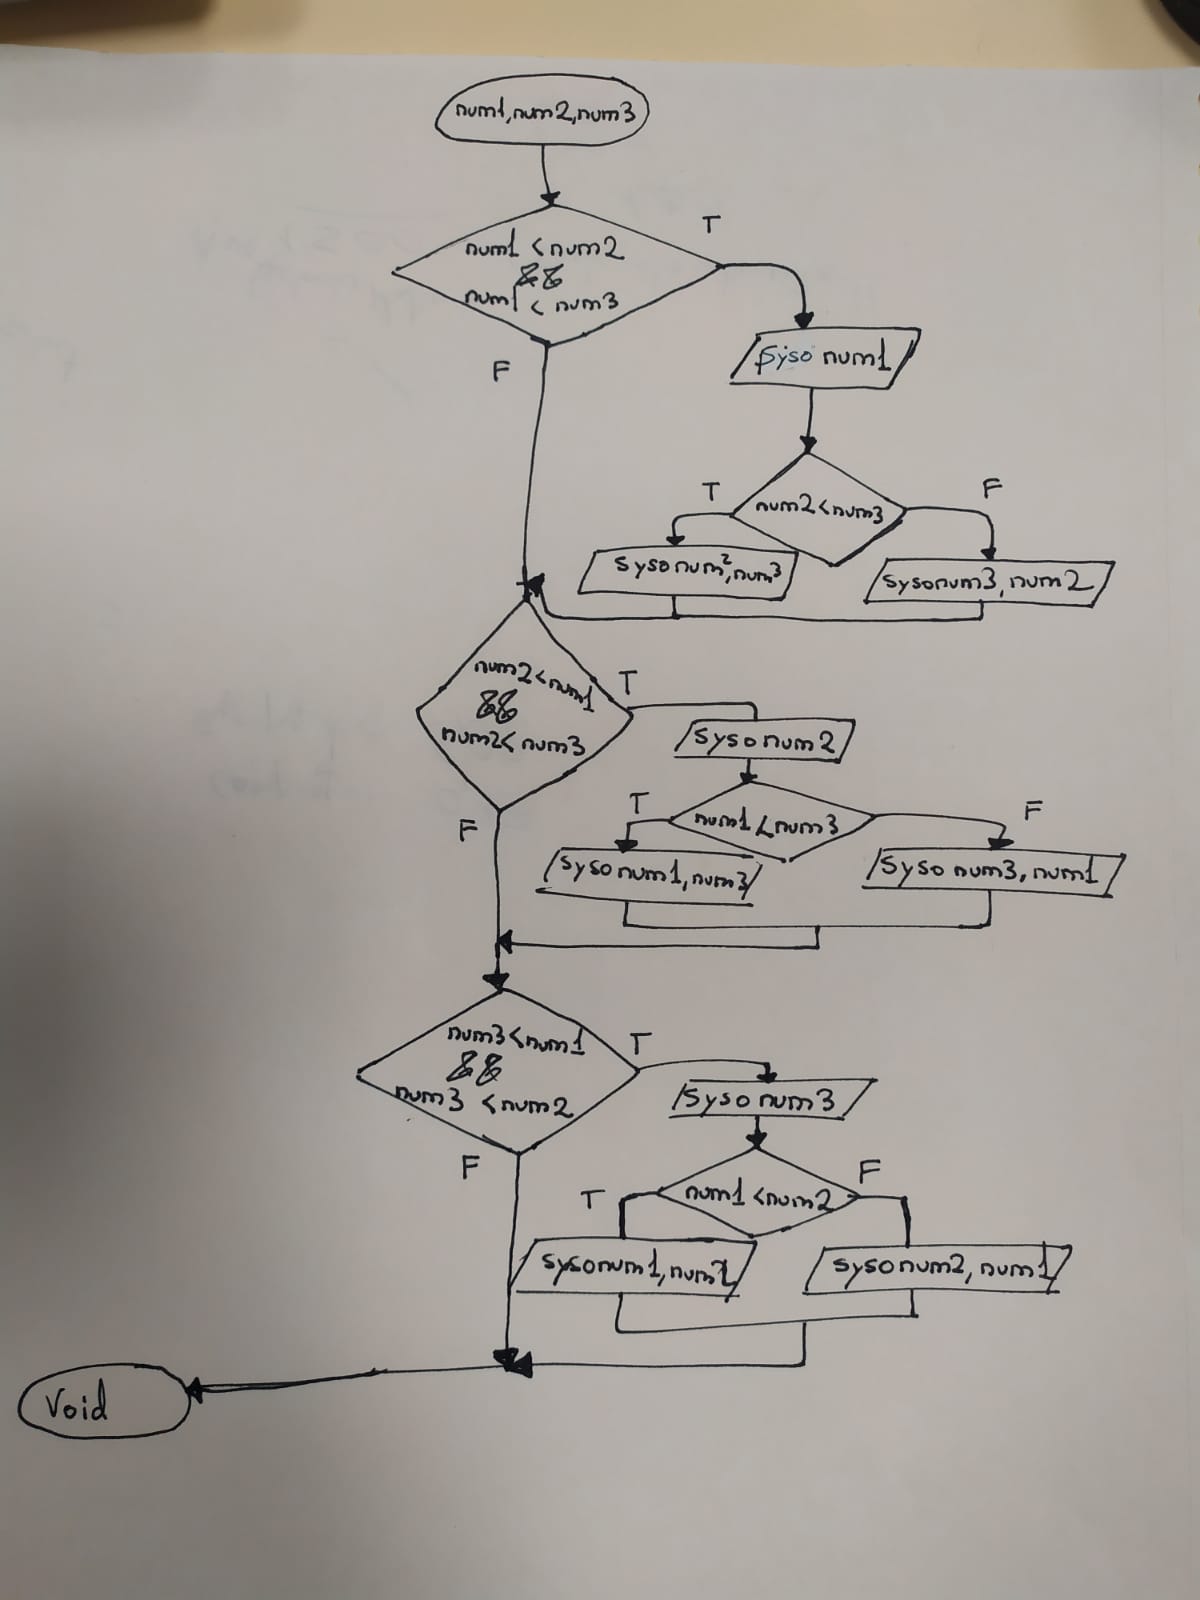 num1,num2,num3
T
num1 <num2
&&
num1 < num3
F
Syso num1
T
num2<num3
F
Syso num2,num3
Sysonum3, num2
num2<num1
&&
num2< num3
T
Syso num2
F
T
num1 <num3
F
Syso num1, num3
Syso num3, num1
num3<num1
&&
num3 <num2
T
Syso num3
F
T
num1 <num2
F
Sysonum1, num2
Syso num2, num1
Void